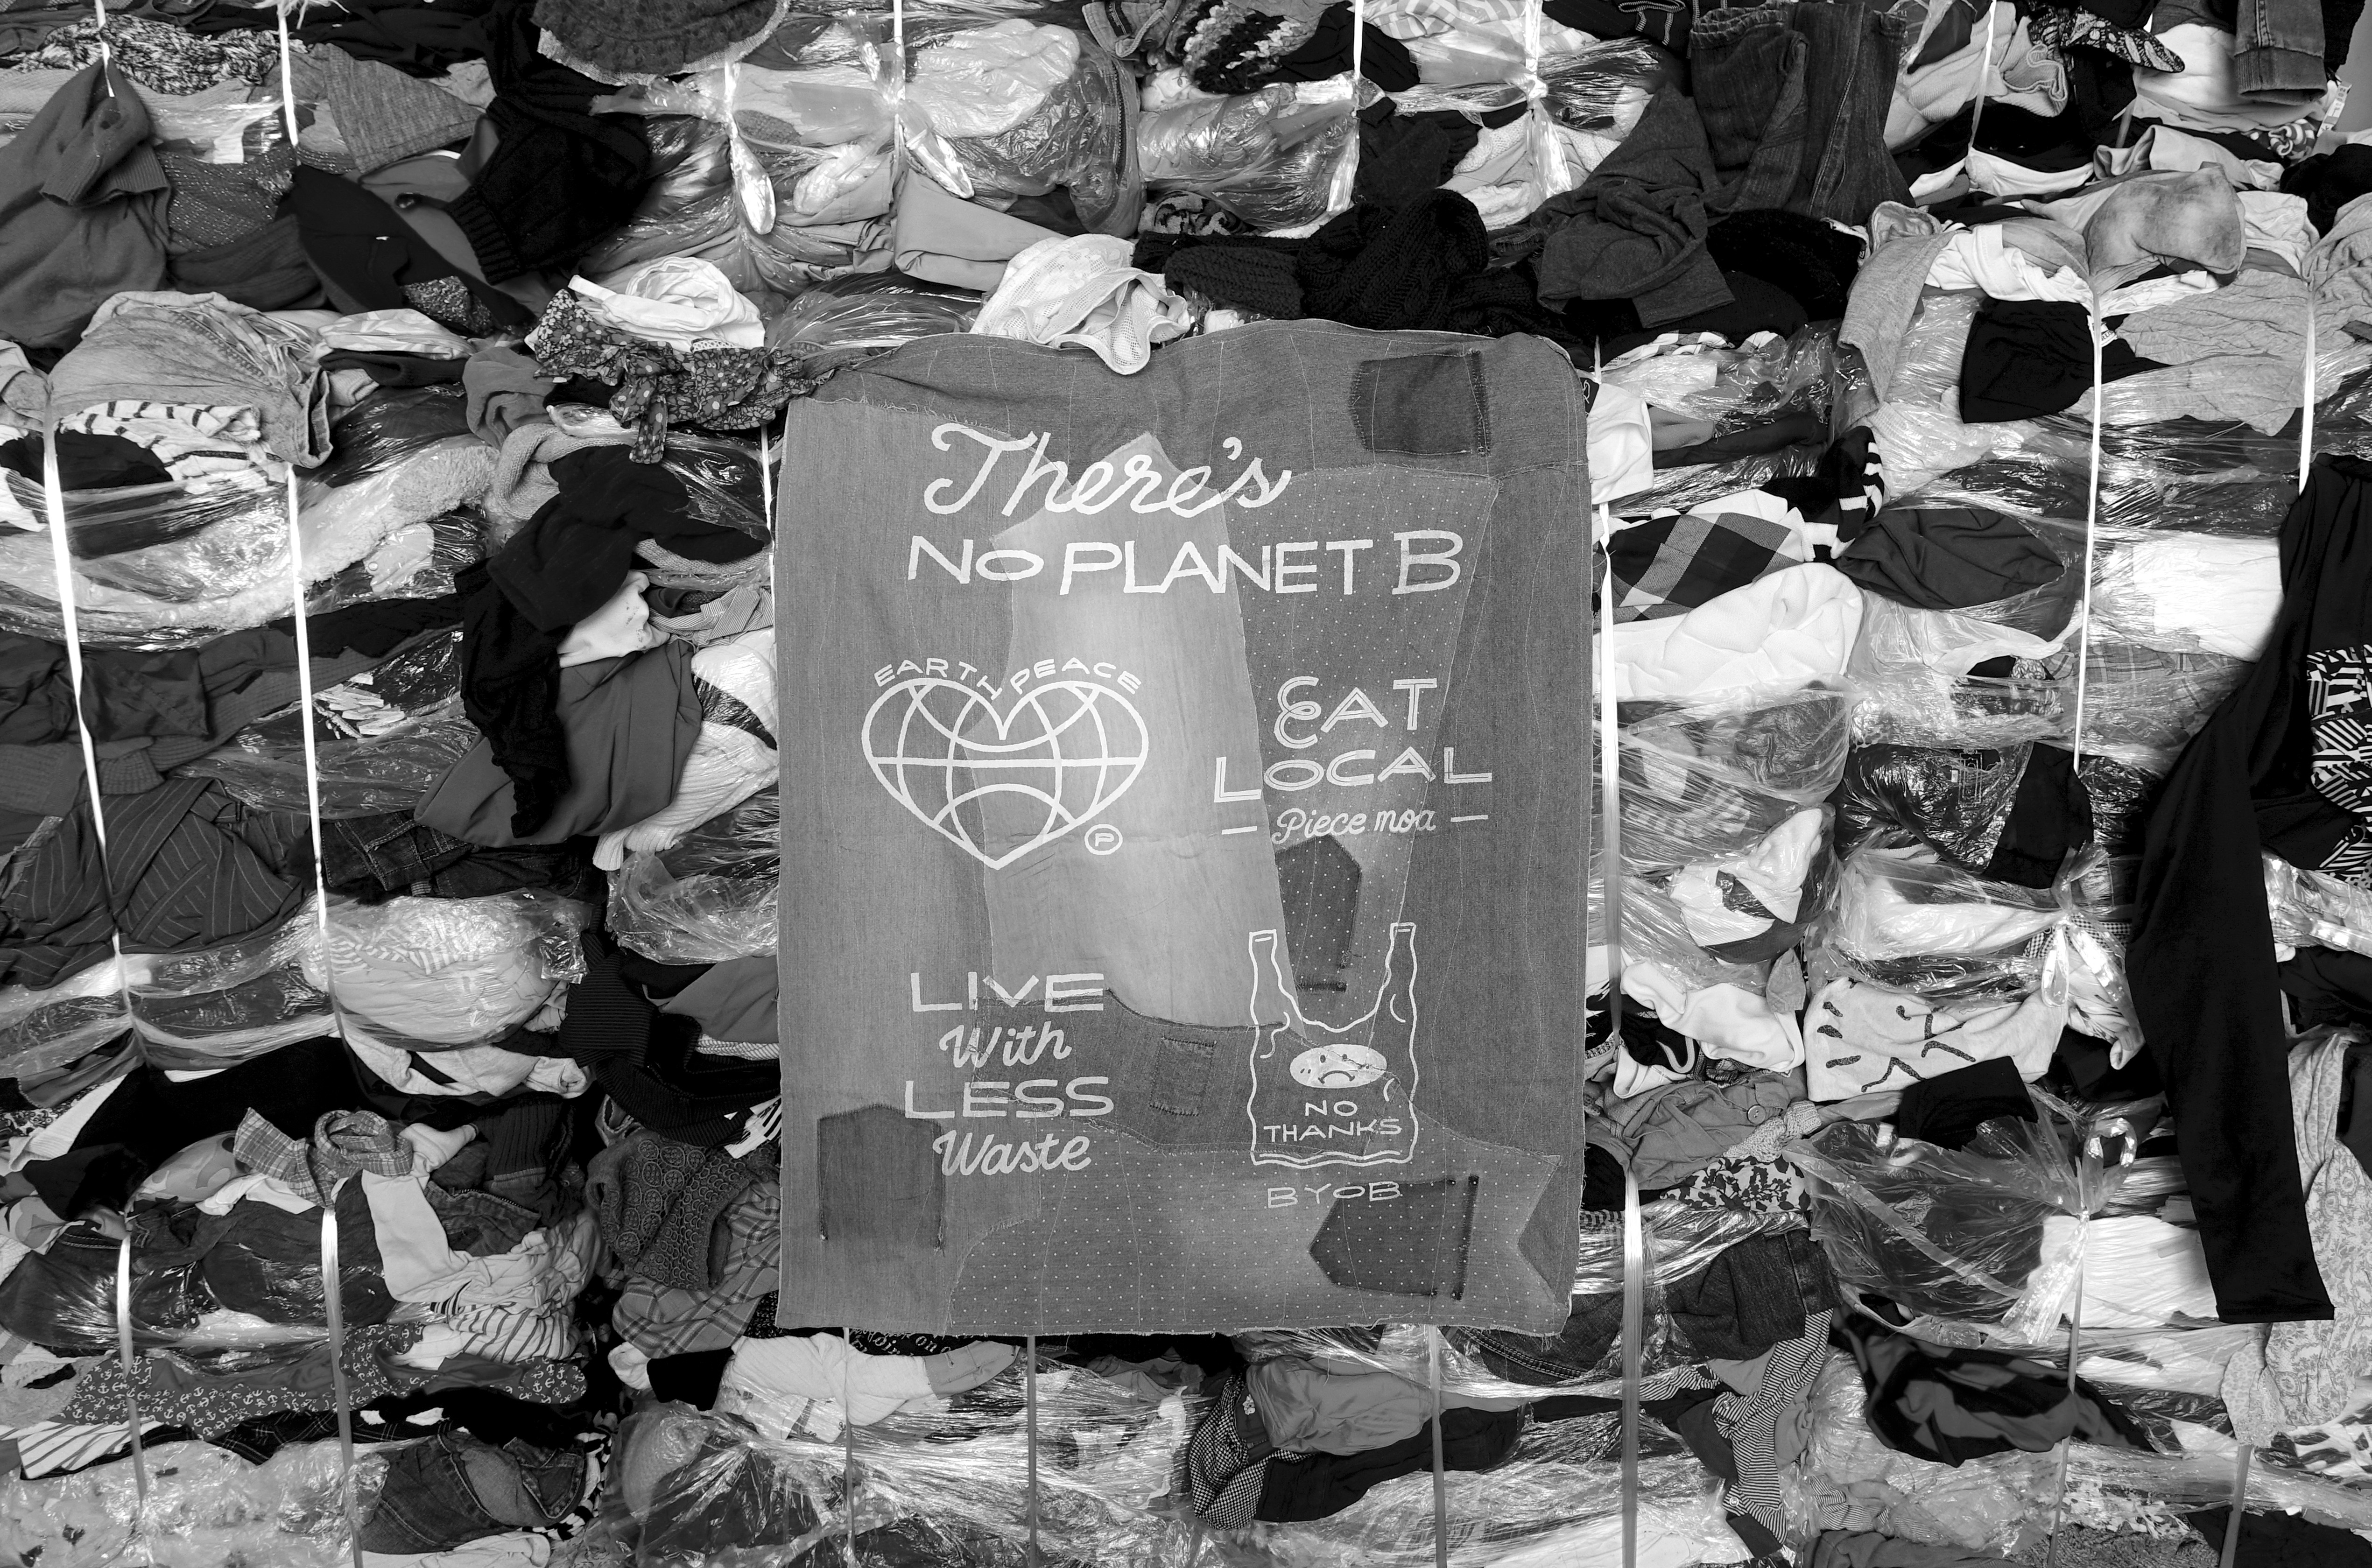 There's
NO PLANET B
EARTH PEACE
P
EAT
LOCAL
— Piece moa —
LIVE
With
LESS
Waste
NO
THANKS
BYOB